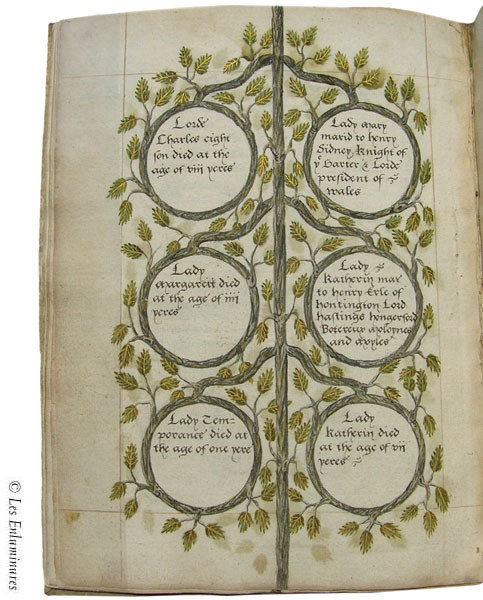 Lorde
Charles eight
son died at the
age of viij yeres
Lady mary
marid to henry
Sidney Knight of
y Garter & Lorde
president of
wales
Lady
margareit died
at the age of iiij
yeres
Lady
Katherin mar
to henry Erle of
hontington Lord
hastings hongerford
Botereux moloynes
and moyles
Lady Tem-
porance died at
the age of one yere
Lady
Katherin died
at the age of vij
yeres
© Les Enluminures